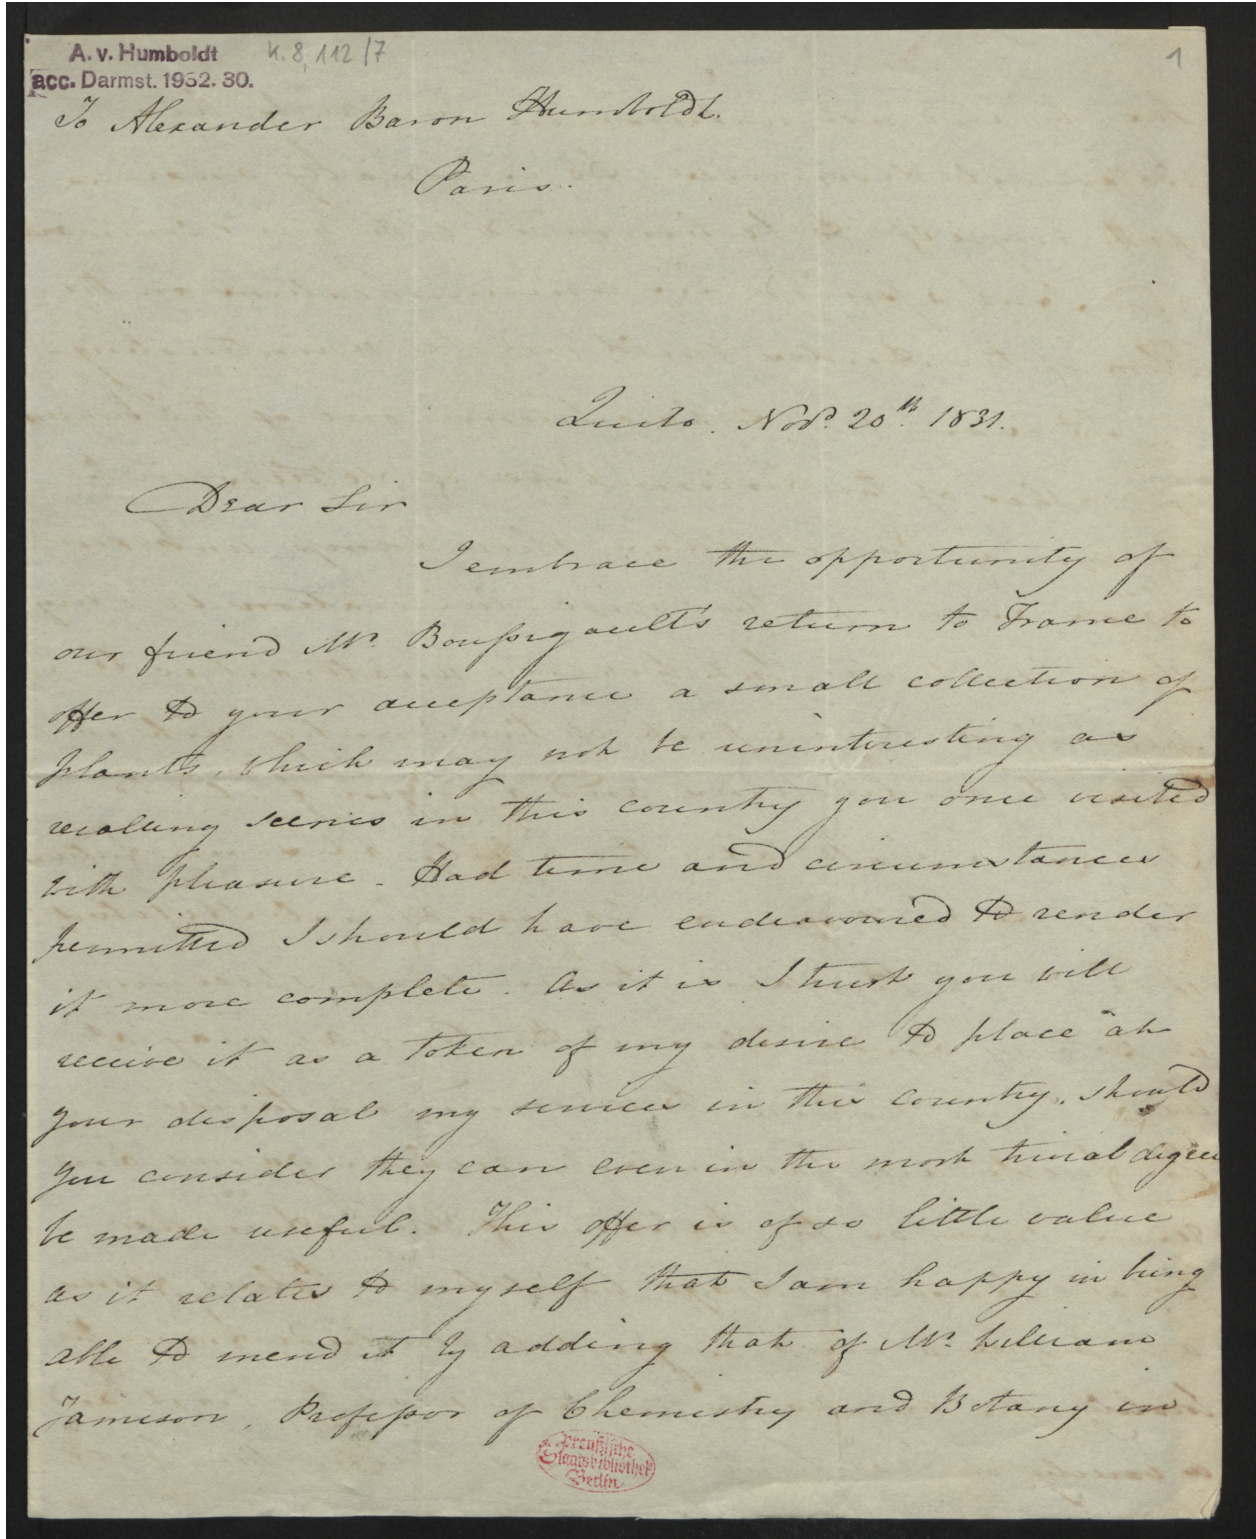 A. v. Humboldt K. 8, 112/7
acc. Darmst. 1932. 30.
1
To Alexander Baron Humboldt.
Paris.
Quito. Novr. 20th. 1831.
Dear Sir
I embrace the opportunity of
our friend Mr. Boussigault's return to France to
offer to your acceptance a small collection of
plants, which may not be uninteresting as
recalling scenes in this country you once visited
with pleasure. Had time and circumstances
permitted I should have endeavoured to render
it more complete. As it is I trust you will
receive it as a token of my desire to place at
your disposal my services in this country, should
you consider they can even in the most trivial degree
be made useful. This offer is of so little value
as it relates to myself that I am happy in being
able to mend it by adding that of Mr. William
Jameson, Professor of Chemistry and Botany in
Preußische
Staatsbibliothek
Berlin